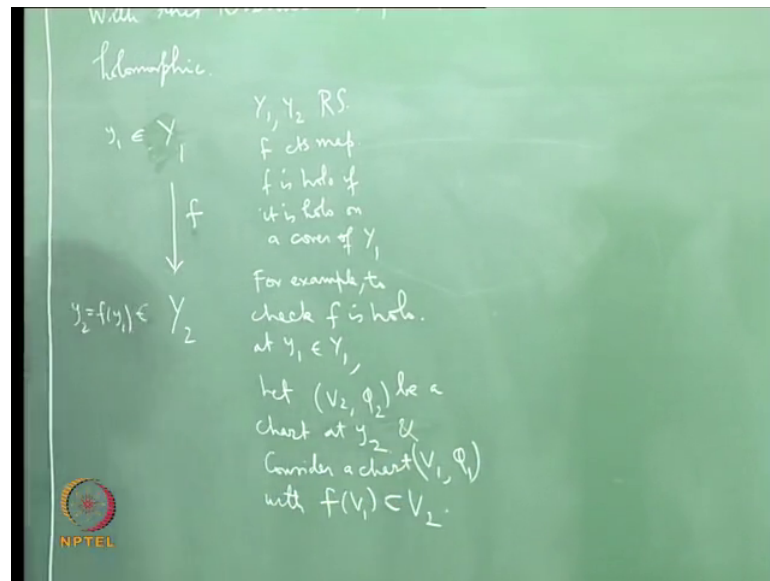 With this
holomorphic.
y₁ ∈ Y₁
f
y₂ = f(y₁) ∈ Y₂
Y₁, Y₂ RS.
f cts map.
f is holo if
it is holo on
a cover of Y₁
For example, to
check f is holo.
at y₁ ∈ Y₁,
Let (V₂, φ₂) be a
chart at y₂ &
Consider a chart (V₁, φ₁)
with f(V₁) ⊂ V₂.
NPTEL